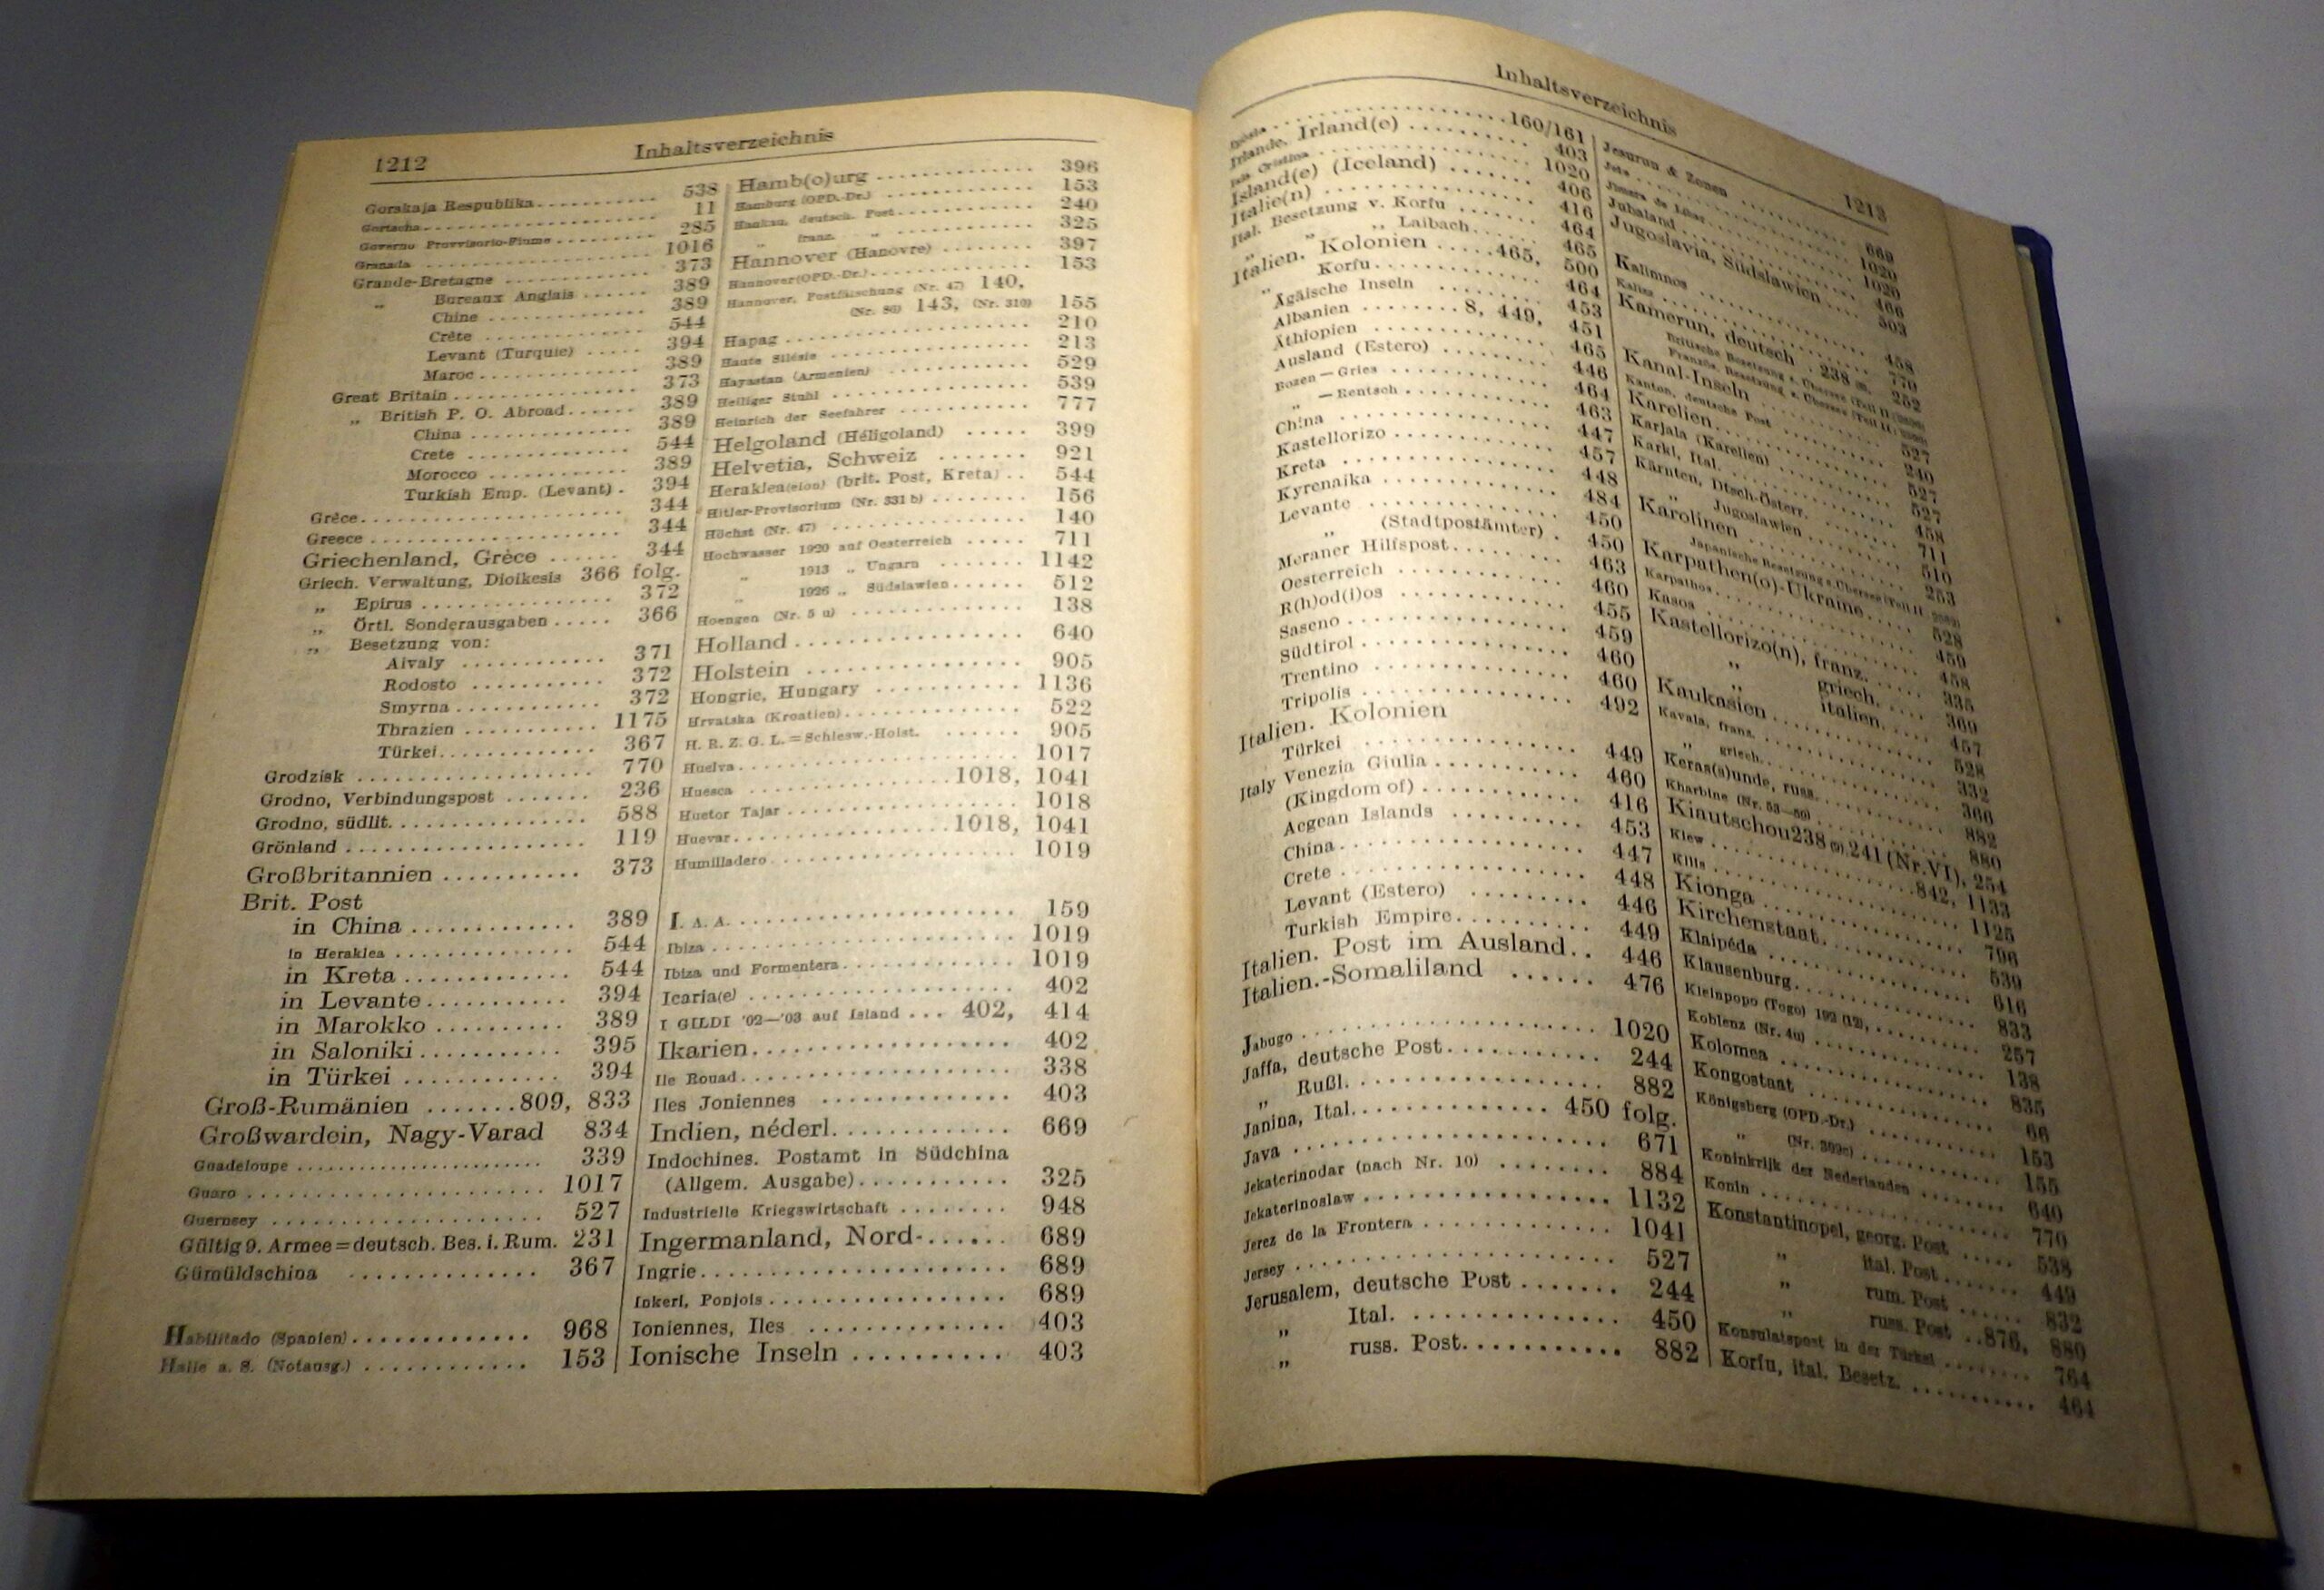 1212 Inhaltsverzeichnis
Gorskaja Respublika 538
Gortscha 11
Governo Provvisorio-Fiume 285
Granada 1016
Grande-Bretagne 373
„ Bureaux Anglais 389
Chine 389
Crête 544
Levant (Turquie) 394
Maroc 389
Great Britain 373
„ British P. O. Abroad 389
China 389
Crete 544
Morocco 389
Turkish Emp. (Levant) 394
Grèce 344
Greece 344
Griechenland, Grèce 344
Griech. Verwaltung, Dioikesis 366 folg.
„ Epirus 372
„ Örtl. Sonderausgaben 366
„ Besetzung von:
Aivaly 371
Rodosto 372
Smyrna 372
Thrazien 1175
Türkei 367
Grodzisk 770
Grodno, Verbindungspost 236
Grodno, südlit. 588
Grönland 119
Großbritannien 373
Brit. Post
in China 389
in Heraklea 544
in Kreta 544
in Levante 394
in Marokko 389
in Saloniki 395
in Türkei 394
Groß-Rumänien 809, 833
Großwardein, Nagy-Varad 834
Guadeloupe 339
Guaro 1017
Guernsey 527
Gültig 9. Armee=deutsch. Bes. i. Rum. 231
Gümüldschina 367
Habilitado (Spanien) 968
Halle a. S. (Notausg.) 153
Hamb(o)urg 396
Hamburg (OPD.-Dr.) 153
Hankau, deutsch. Post 240
„ franz. „ 325
Hannover (Hanovre) 397
Hannover (OPD.-Dr.) 153
Hannover, Postfälschung (Nr. 47) 140,
143, (Nr. 310) 155
Hapag 210
Haute Silésie 213
Hayastan (Armenien) 529
Heiliger Stuhl 539
Heinrich der Seefahrer 777
Helgoland (Héligoland) 399
Helvetia, Schweiz 921
Heraklea(eion) (brit. Post, Kreta) 544
Hitler-Provisorium (Nr. 331 b) 156
Höchst (Nr. 47) 140
Hochwasser 1920 auf Oesterreich 711
„ 1913 „ Ungarn 1142
„ 1926 „ Südslawien 512
Hoengen (Nr. 5 u) 138
Holland 640
Holstein 905
Hongrie, Hungary 1136
Hrvatska (Kroatien) 522
H. R. Z. G. L.=Schlesw.-Holst. 905
Huelva 1017
Huesca 1018, 1041
Huetor Tajar 1018
Huevar 1018, 1041
Humilladero 1019
I. A. A. 159
Ibiza 1019
Ibiza und Formentera 1019
Icaria(e) 402
I GILDI '02—'03 auf Island 402, 414
Ikarien 402
Ile Rouad 338
Iles Joniennes 403
Indien, néderl. 669
Indochines. Postamt in Südchina
(Allgem. Ausgabe) 325
Industrielle Kriegswirtschaft 948
Ingermanland, Nord- 689
Ingrie 689
Inkeri, Ponjois 689
Ioniennes, Iles 403
Ionische Inseln 403
Inhaltsverzeichnis 1213
160/161
Irlande, Irland(e) 403
Isla Cristina 1020
Island(e) (Iceland) 406
Italie(n) 416
Ital. Besetzung v. Korfu 464
„ „ Laibach 465
Italien. Kolonien 465, 500
„ Korfu 464
Ägäische Inseln 453
Albanien 8, 449, 451
Äthiopien 465
Ausland (Estero) 446
Bozen—Gries 464
„ —Rentsch 463
China 447
Kastellorizo 457
Kreta 448
Kyrenaika 484
Levante 450
„ (Stadtpostämter) 450
Meraner Hilfspost 463
Oesterreich 460
R(h)od(i)os 455
Saseno 459
Südtirol 460
Trentino 460
Tripolis 492
Italien. Kolonien
Türkei 449
Venezia Giulia 460
Italy (Kingdom of) 416
Aegean Islands 453
China 447
Crete 448
Levant (Estero) 446
Turkish Empire 449
Italien. Post im Ausland 446
Italien.-Somaliland 476
Jabugo 1020
Jaffa, deutsche Post 244
„ Rußl. 882
Janina, Ital. 450 folg.
Java 671
Jekaterinodar (nach Nr. 10) 884
Jekaterinoslaw 1132
Jerez de la Frontera 1041
Jersey 527
Jerusalem, deutsche Post 244
„ Ital. 450
„ russ. Post 882
Jesurun & Zonen 669
1020
Jimera de Libar 1020
Jubaland 466
Jugoslavia, Südslawien 503
Kalimnos 458
Kalisz 770
Kamerun, deutsch 238 252
Britische Besetzung s. Übersee (Teil II
Französ. Besetzung s. Übersee (Teil II
Kanal-Inseln 527
Kanton, deutsche Post 240
Karelien 527
Karjala (Karelien) 527
Karki, Ital. 458
Kärnten, Dtsch-Österr. 711
„ Jugoslawien 510
Karolinen 253
Japanische Besetzung s. Übersee (Teil II
Karpathen(o)-Ukraine 528
Karpathos 459
Kasos 458
Kastellorizo(n), franz. 335
„ griech. 369
„ italien. 457
Kaukasien 528
Kavala, franz. 332
„ griech. 366
Keras(s)unde, russ. 882
Kharbine (Nr. 53—60) 880
Kiautschou 238 241 (Nr.VI), 254
Kiew 842, 1133
Kilis 1125
Kionga 796
Kirchenstaat 539
Klaipéda 616
Klausenburg 833
Kleinpopo (Togo) 192 (12), 257
Koblenz (Nr. 4u) 138
Kolomea 835
Kongostaat 66
Königsberg (OPD.-Dr.) 153
„ 155
Koninkrijk der Nederlanden 640
Konin 770
Konstantinopel, georg. Post 538
„ ital. Post 449
„ rum. Post 832
„ russ. Post 876, 880
Konsulatspost in der Türkei 764
Korfu, ital. Besetz. 464